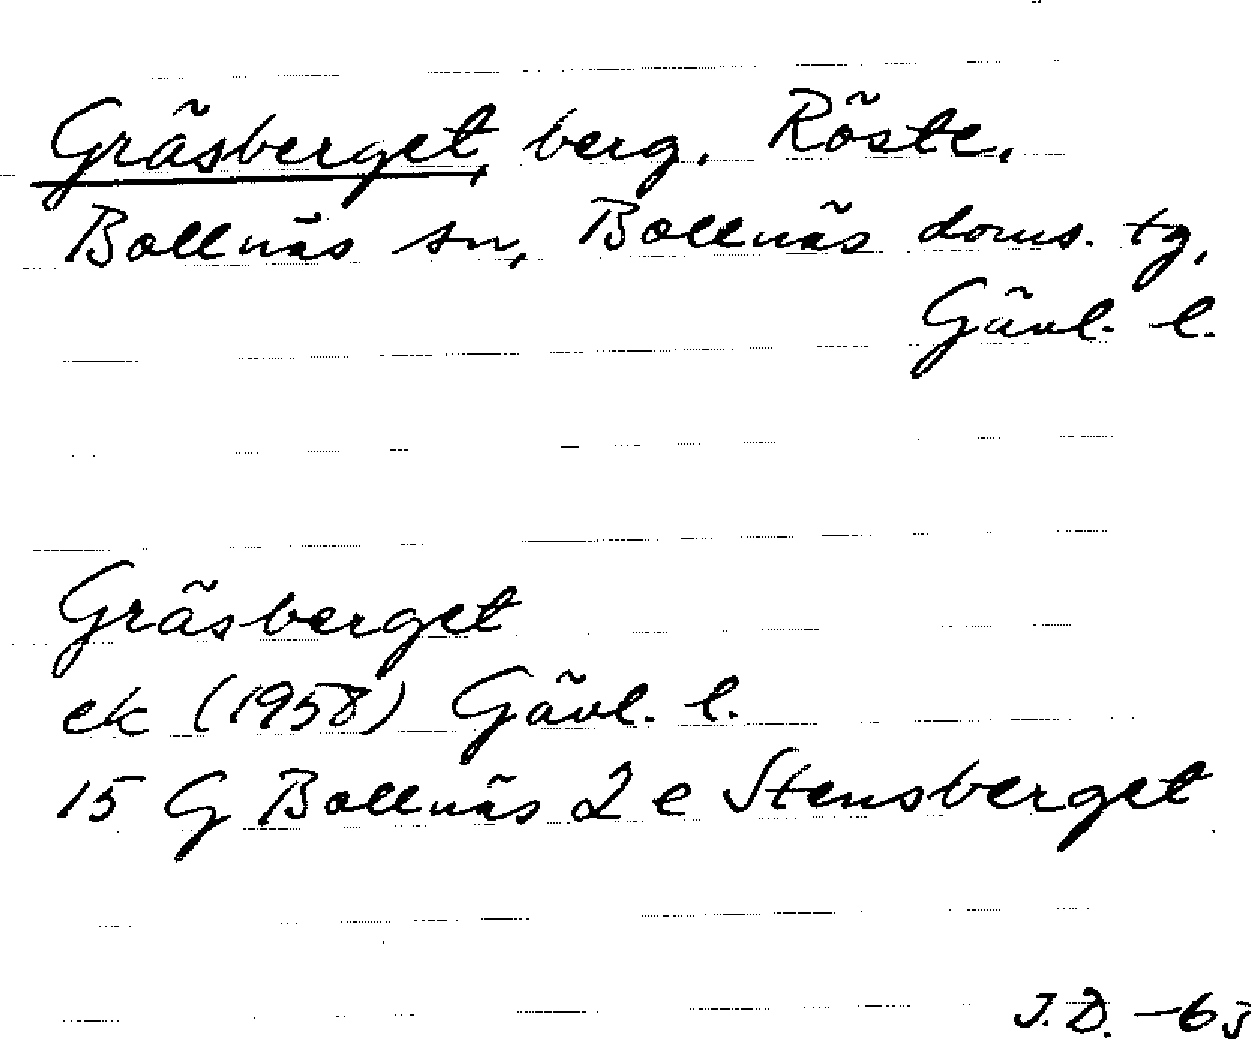 Gräsberget, berg. Röste.
Bollnäs sn, Bollnäs doms. tg,
Gävl. l.
Gräsberget
ek (1958) Gävl. l.
15 G Bollnäs 2 e Stensberget
J.D. -63